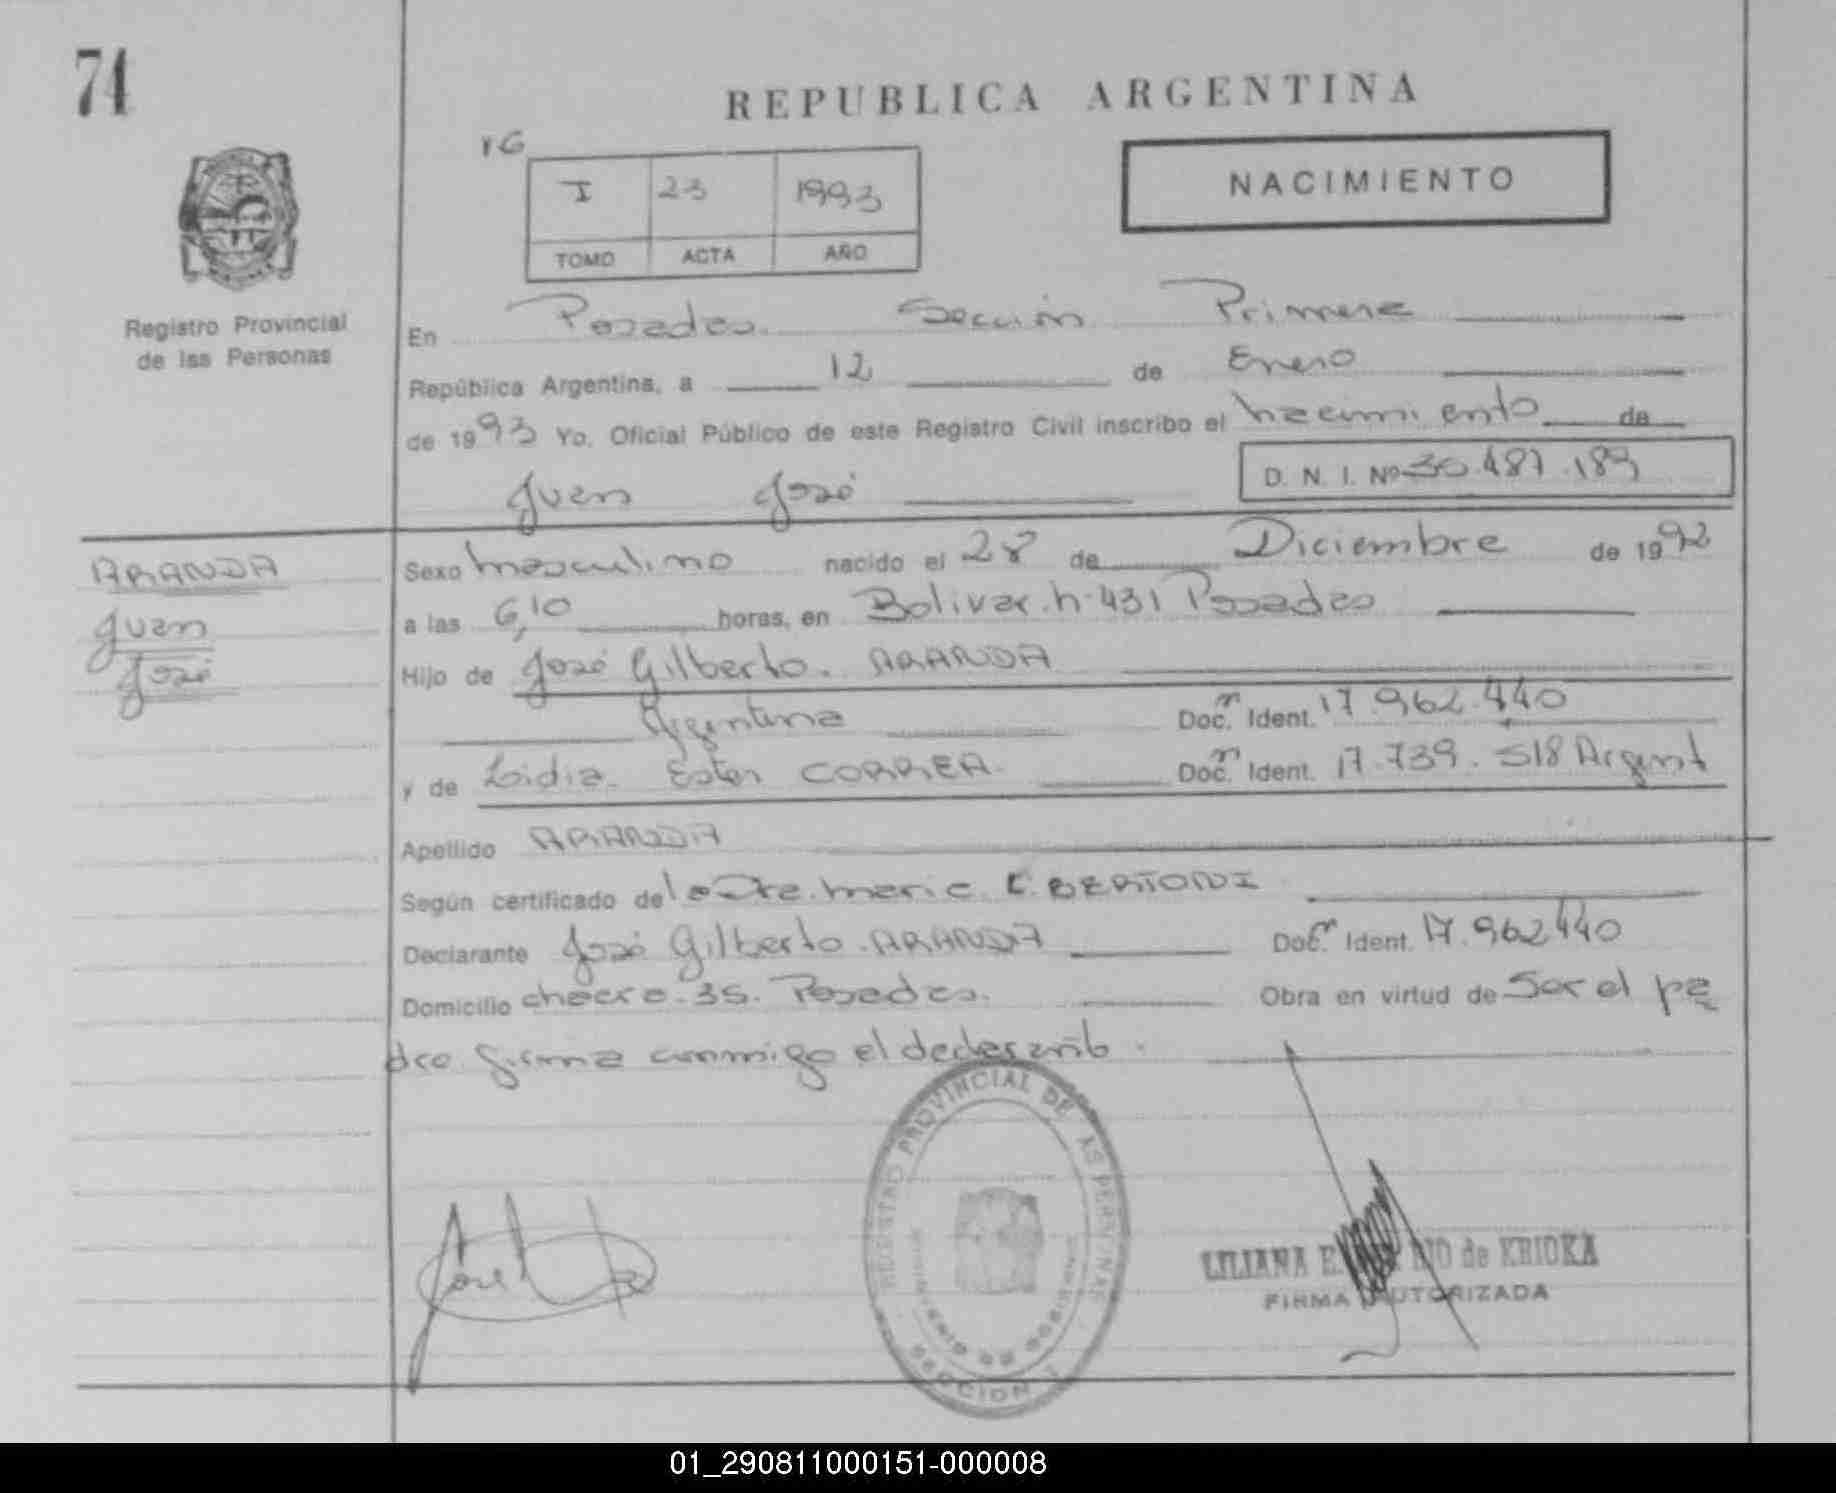 74
REPUBLICA ARGENTINA
NACIMIENTO
I 23 1993
TOMO ACTA AÑO
Registro Provincial
de las Personas
En Posadas. Sección Primera
República Argentina, a 12 de Enero
de 1993 Yo, Oficial Público de este Registro Civil inscribo el nacimiento de
D. N. I. Nº 30.487.189
Juan José
ARANDA
Juan
José
Sexo masculino nacido el 28 de Diciembre de 1992
a las 6,10 horas, en Bolivar. n. 431 Posadas
Hijo de José Gilberto. ARANDA
Argentina Doc. Ident. 17.962.440
y de Lidia. Ester CORREA. Doc. Ident. 17.739.518 Argent
Apellido ARANDA
Según certificado de la Dra. Maria E. BERTONI
Declarante José Gilberto. ARANDA Doc. Ident. 17.962440
Domicilio chacra. 35. Posadas. Obra en virtud de Ser el pa
dre firma conmigo el declarante.
REGISTRO PROVINCIAL DE LAS PERSONAS
MINISTERIO DE GOBIERNO
SECCION 1
LILIANA E RIO de KRIOKA
FIRMA AUTORIZADA
01_290811000151-000008